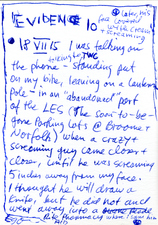 EVIDENCE 10
Later, his face covered with cream + screaming
18 VII 15 I was talking on
the phone - standing put
on my bike, leaning on a lantern
Pole - in an "abandoned" part
of the LES (The soon-to-be-
gone Parking Lots @ Broome +
Norfolk) when a crazy +
screaming guy came closer +
closer, until he was screaming
5 inches away from my face.
I thought he will draw a
knife, but he did not and
went away into a
Rite Pharmacy where I saw him